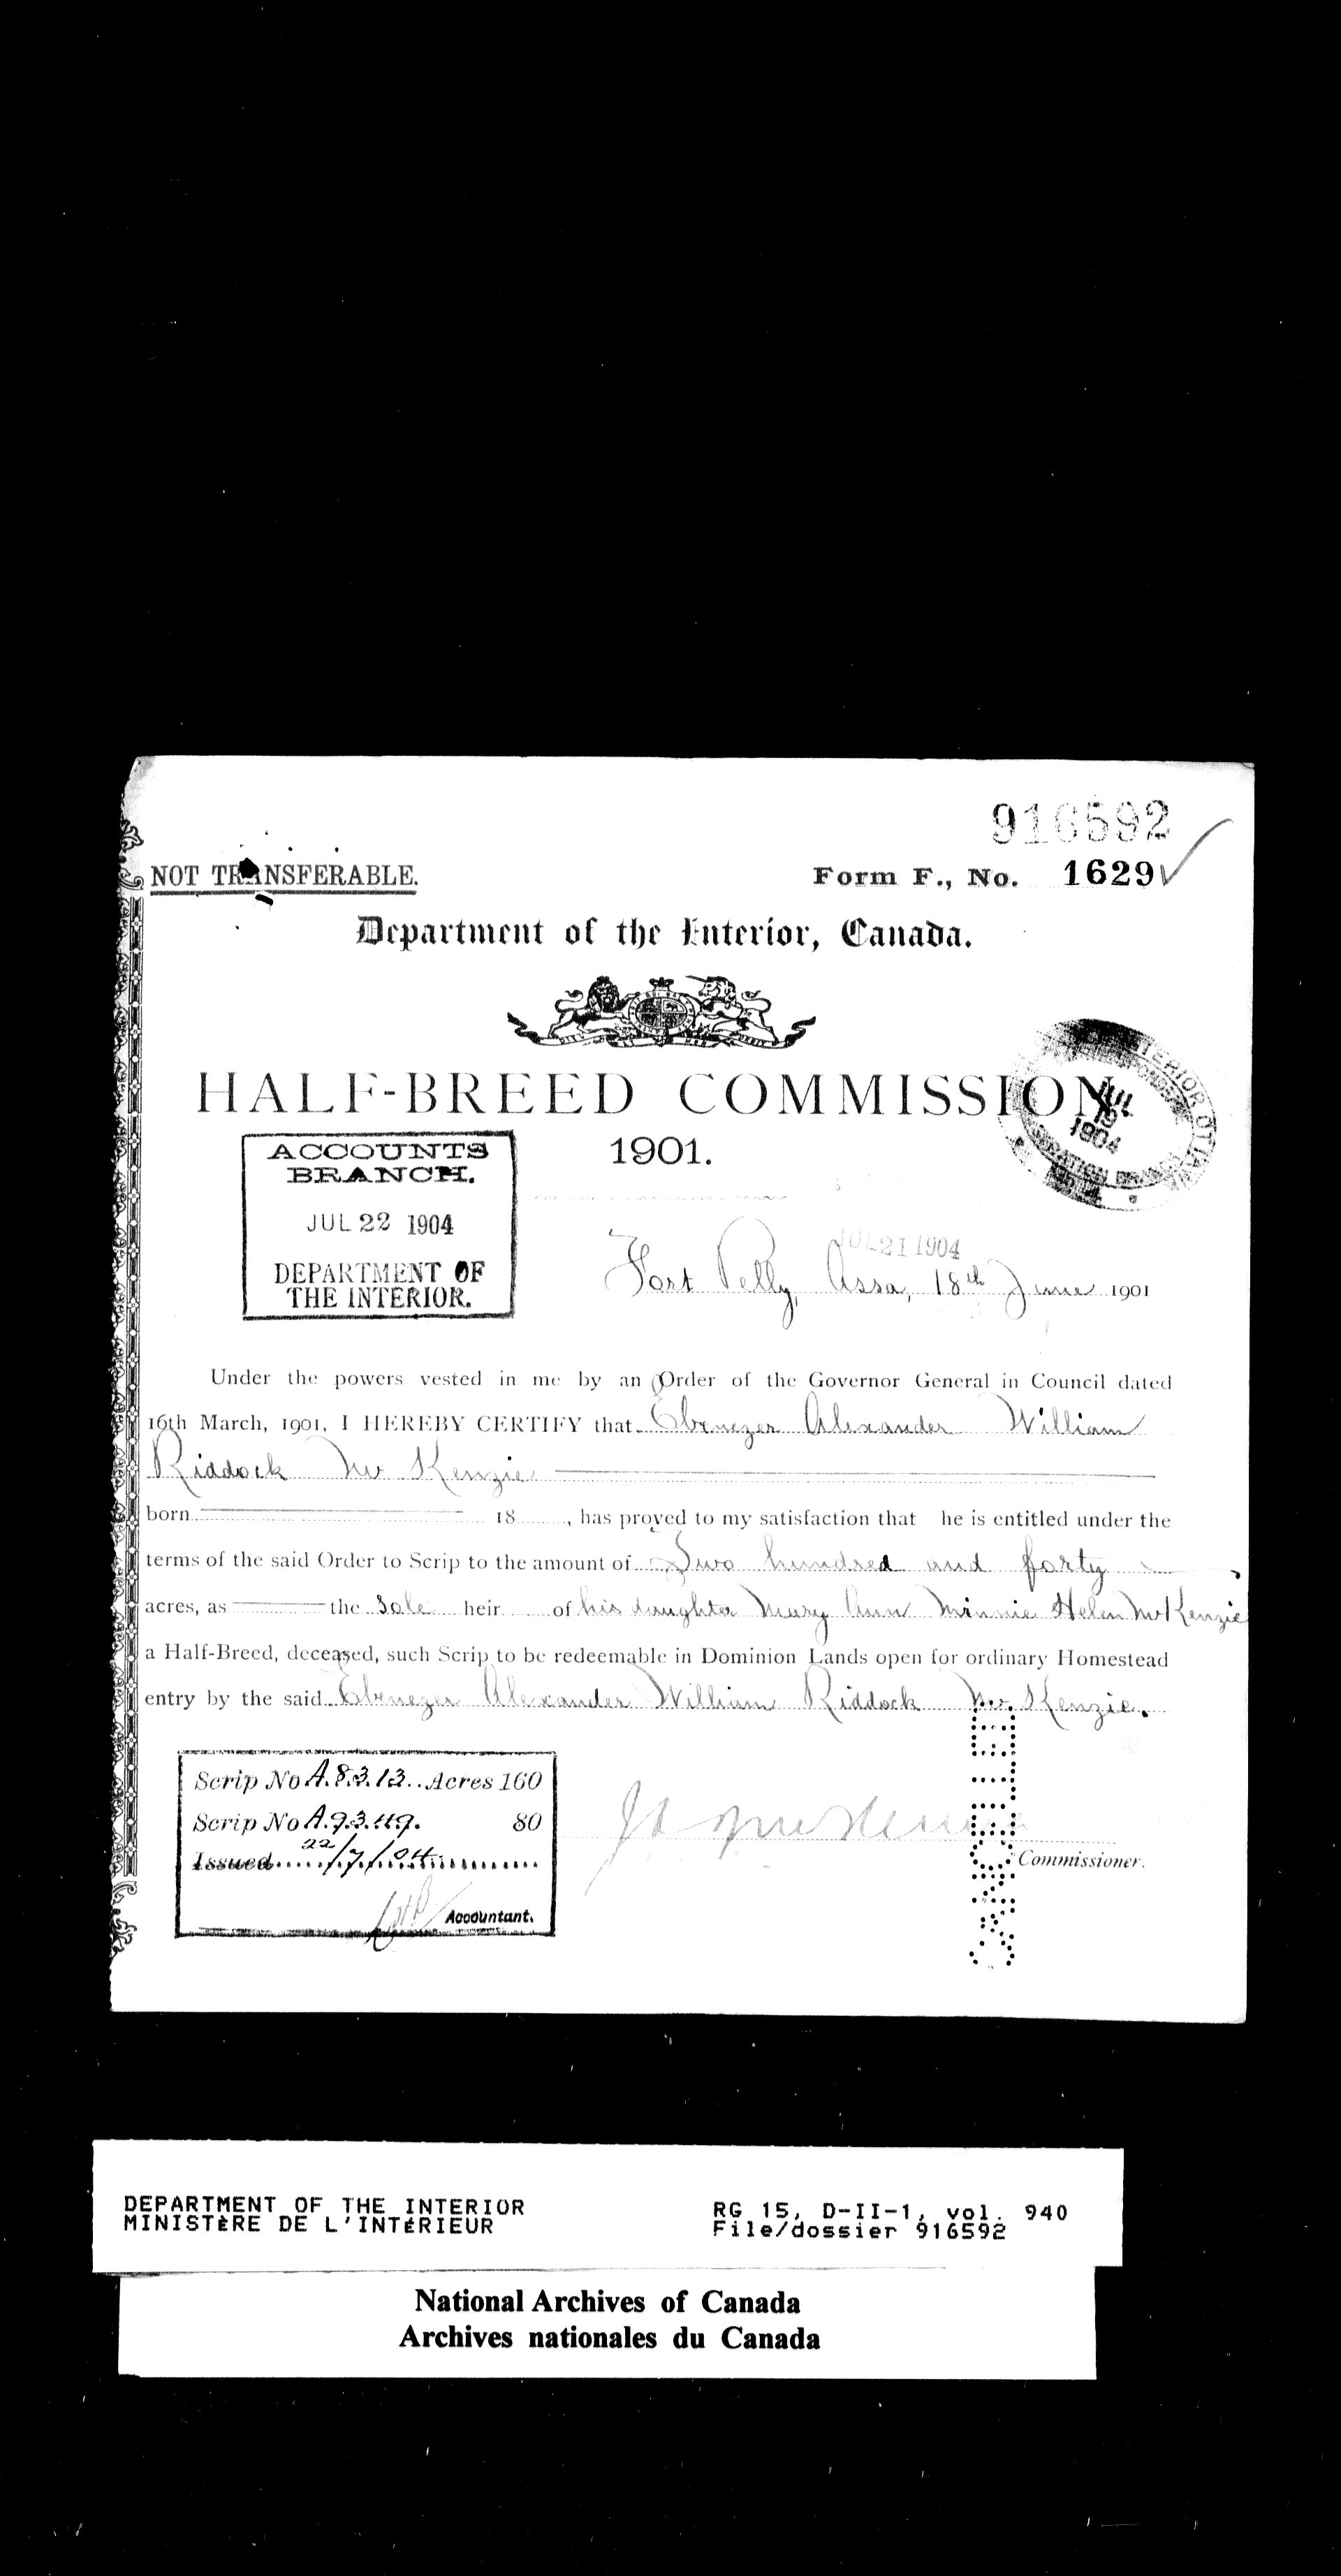 916592
NOT TRANSFERABLE.
Form F., No. 1629
Department of the Interior, Canada.
HALF-BREED COMMISSION.
1901.
JUL 19 1904
ACCOUNTS
BRANCH.
JUL 22 1904
DEPARTMENT OF
THE INTERIOR.
JUL 21 1904
Fort Pelly, Assa, 18th June 1901
Under the powers vested in me by an Order of the Governor General in Council dated
16th March, 1901, I HEREBY CERTIFY that Ebenezer Alexander William
Riddock McKenzie
born 18 , has proved to my satisfaction that he is entitled under the
terms of the said Order to Scrip to the amount of Two hundred and forty
acres, as the Sole heir of his daughter Mary Ann Minnie Helen McKenzie
a Half-Breed, deceased, such Scrip to be redeemable in Dominion Lands open for ordinary Homestead
entry by the said Ebenezer Alexander William Riddock McKenzie.
Scrip No A.8313 Acres 160
Scrip No A.9349. 80
Issued 22/7/04
Accountant.
Commissioner.
CANCELLED
DEPARTMENT OF THE INTERIOR
MINISTÈRE DE L'INTÉRIEUR
RG 15, D-II-1, vol. 940
File/dossier 916592
National Archives of Canada
Archives nationales du Canada